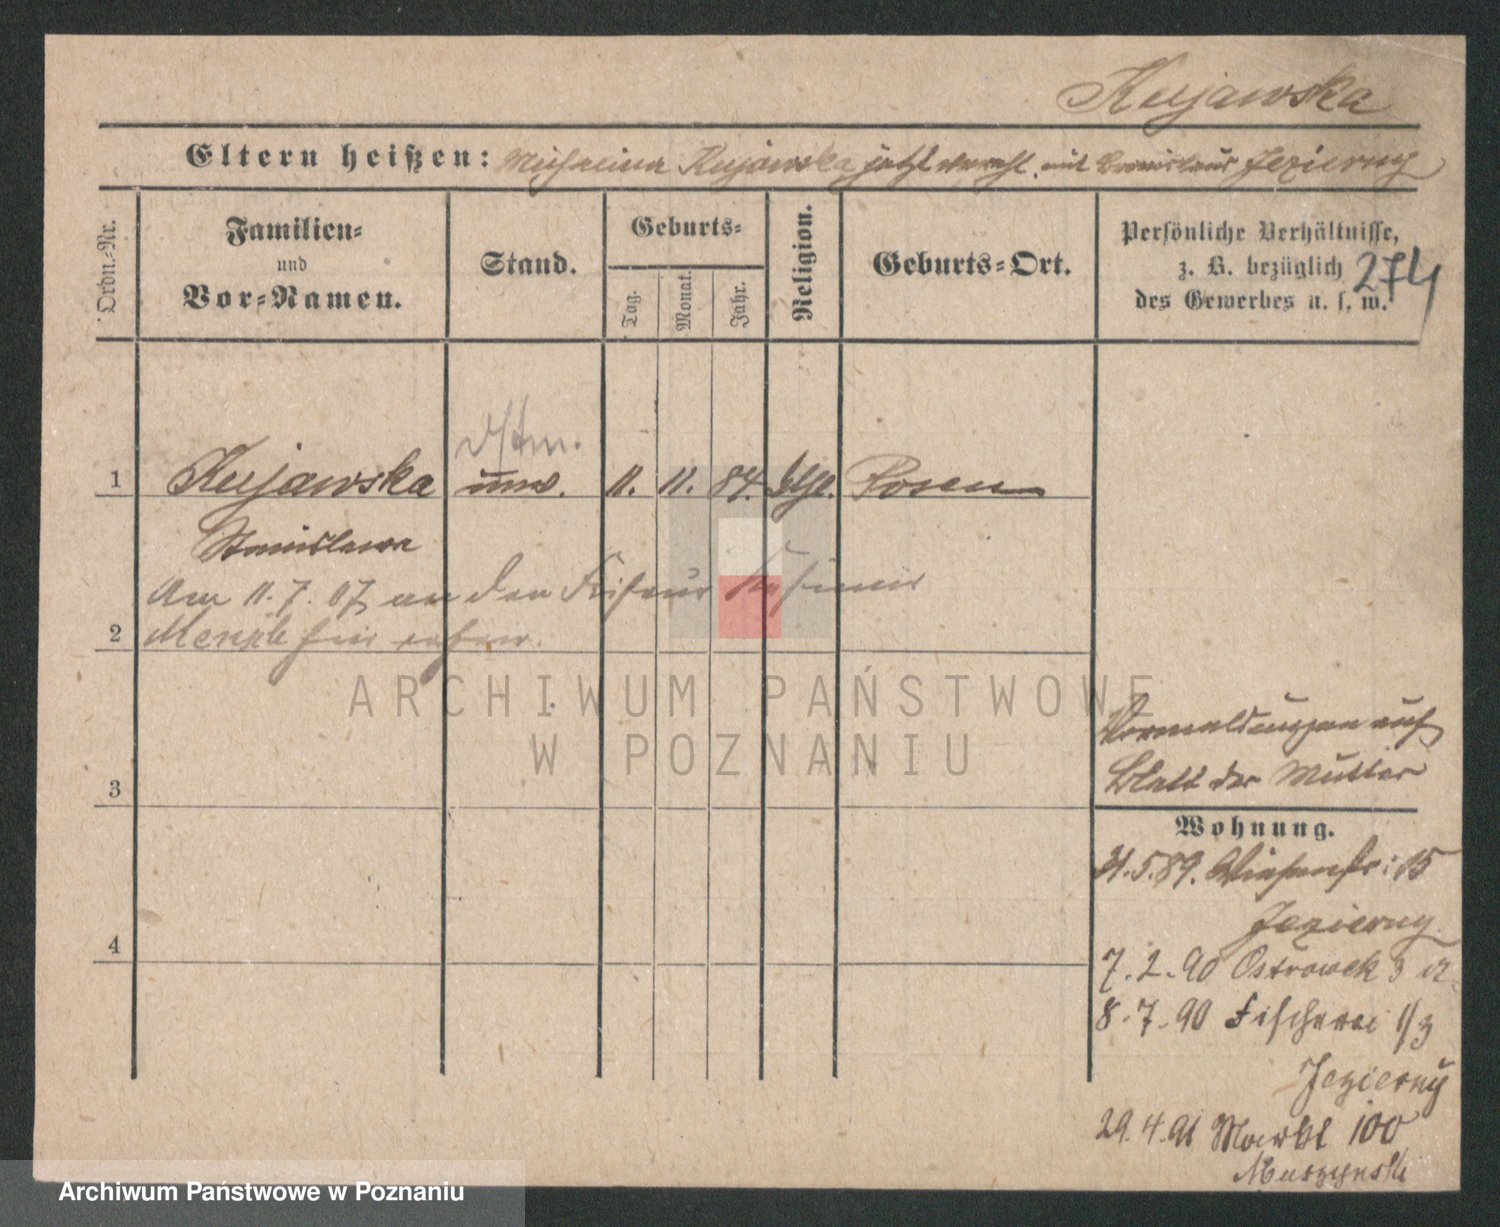 Kujawska
Eltern heißen: Michalina Kujawska jetzt vereht. mit Bronislaus Jezierny
Ordn.-Nr.
Familien-
und
Vor-Namen.
Stand.
Geburts-
Tag.
Monat.
Jahr.
Religion.
Geburts-Ort.
Persönliche Verhältnisse,
z. B. bezüglich
des Gewerbes u. s. w.
274
1 Kujawska unv. 11. 11. 84. Posen
Stanislawa
Am 11.7.07 an den Friseur
2
3
4
Vormeldungen auf
Blatt der Mutter
Wohnung.
31.5.89. Wiesenstr: 15
Jezierny
7.2.90 Ostrowek 3
8-7-90 Fischerei 1/3
Jezierny
29.4.91 Markt 100
Muszynski
ARCHIWUM PAŃSTWOWE
W POZNANIU
Archiwum Państwowe w Poznaniu